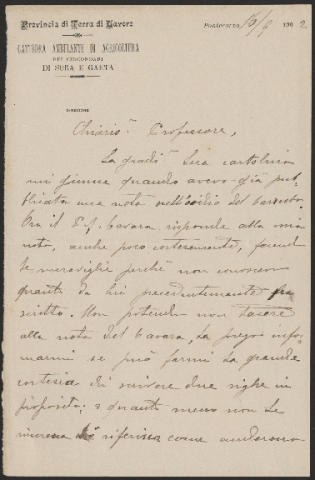 Provincia di Terra di Lavoro
CATTEDRA AMBULANTE DI AGRICOLTURA
NEI CIRCONDARI
DI SORA E GAETA
Pontecorvo, 10/9 1902
DIREZIONE
Chiaris. Professore,
La gradᵐᵃ Sua cartolina
mi giunse quando avevo già pub-
blicata una nota sull'oidio del
Ora il Cavara risponde alla mia
nota, anche poco cortesemente, facend.
le meraviglie perchè non conoscevo
quanto da lui precedentemente fu
scritto. Non potendo non tacere
alla nota del Cavara, La prego infor-
marmi se può farmi la grande
cortesia di scrivere due righe in
proposito; o quanto meno non Le
incresca riferisca come andarono